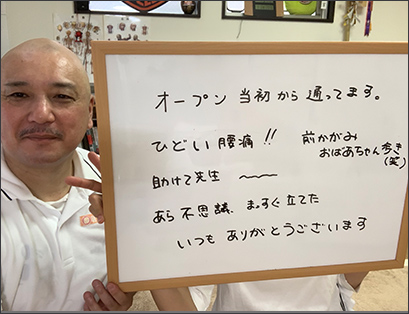 オープン 当初から 通ってます。
ひどい 腰痛!!
前かがみ
おばあちゃん 歩き
(笑)
助けて 先生 〜〜
あら 不思議、まっすぐ 立てた
いつも ありがとうございます